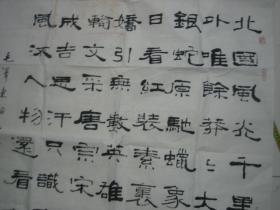 北國風光千里
外唯餘莽々大
銀蛇原馳蠟象
日看紅裝素裹
嬌引無數英雄
輸文采唐宗宋
成吉思汗只識
風流人物還看